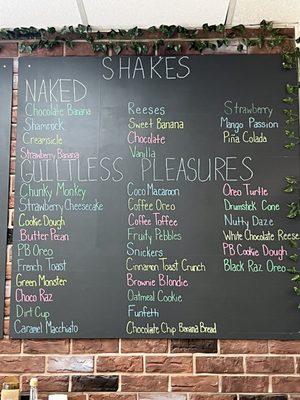 SHAKES
NAKED
Chocolate Banana
Shamrock
Creamsicle
Strawberry Banana
Reeses
Sweet Banana
Chocolate
Vanilla
Strawberry
Mango Passion
Piña Colada
GUILTLESS PLEASURES
Chunky Monkey
Strawberry Cheesecake
Cookie Dough
Butter Pecan
PB Oreo
French Toast
Green Monster
Choco Raz
Dirt Cup
Caramel Macchiato
Coco Macaroon
Coffee Oreo
Coffee Toffee
Fruity Pebbles
Snickers
Cinnamon Toast Crunch
Brownie Blondie
Oatmeal Cookie
Funfetti
Chocolate Chip Banana Bread
Oreo Turtle
Drumstick Cone
Nutty Daze
White Chocolate Reese
PB Cookie Dough
Black Raz Oreo